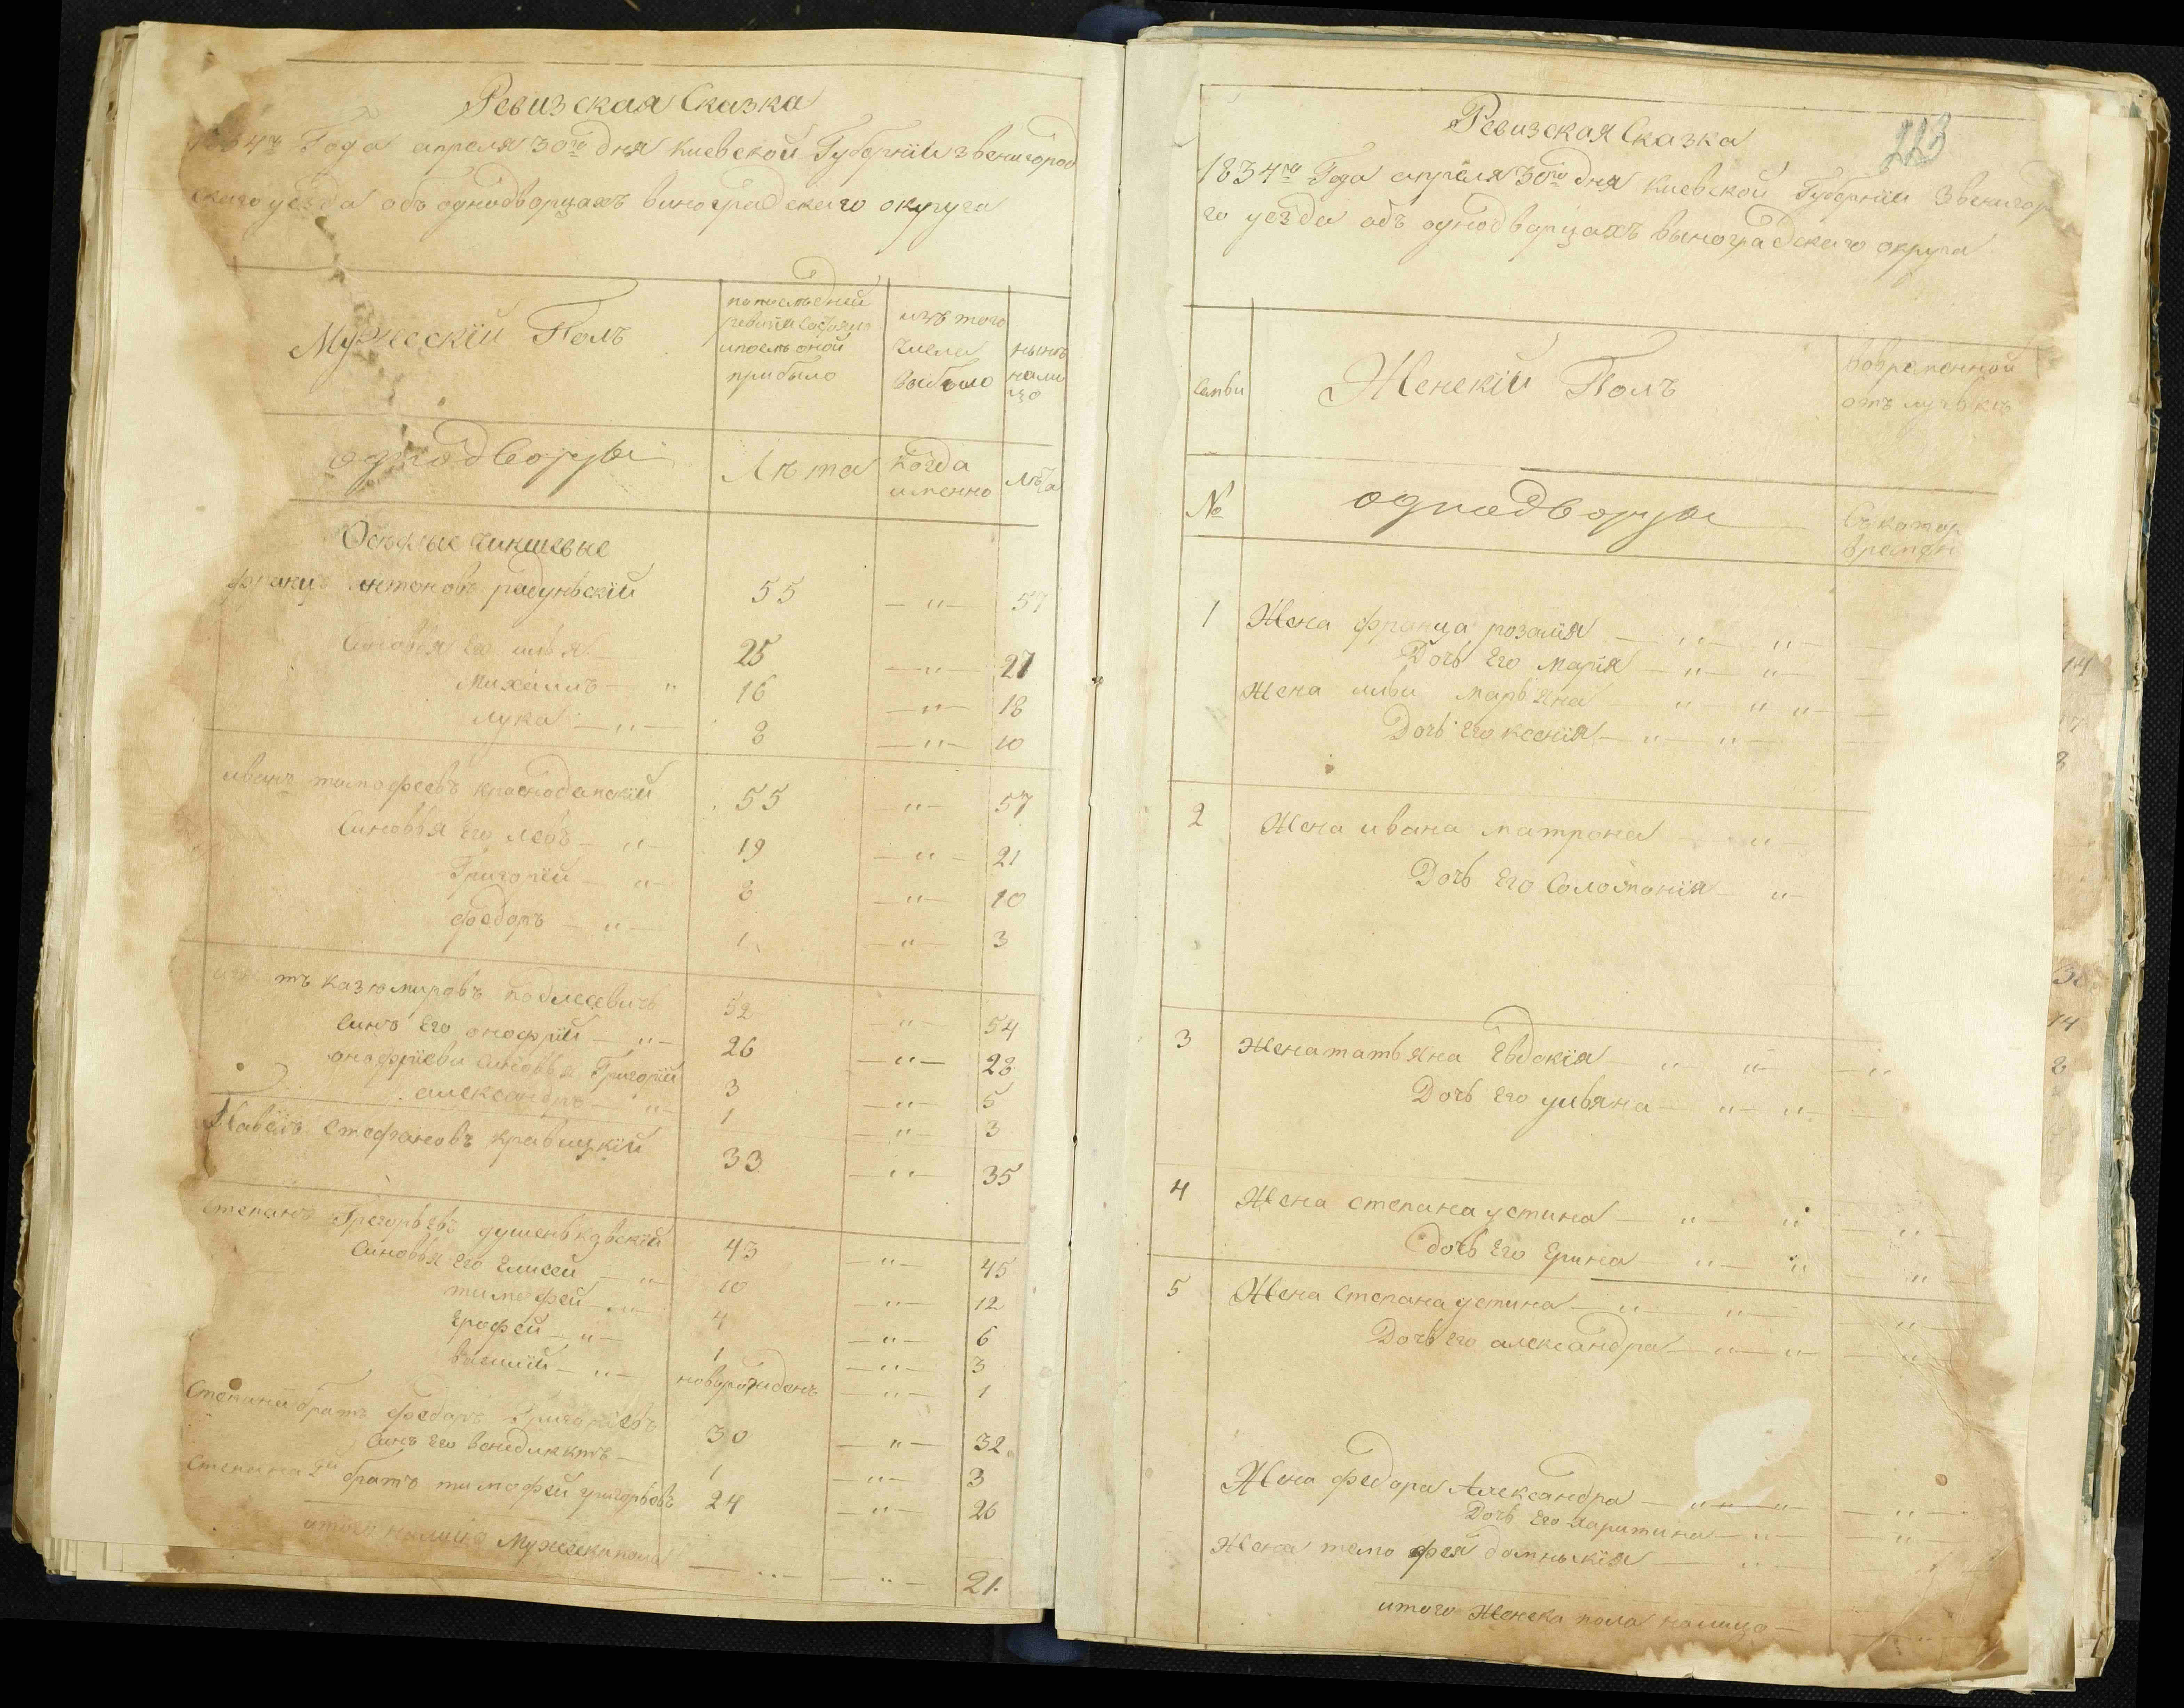 Ревизская Сказка
Года апреля 30го дня Киевской Губернїи Звенигород
скаго уезда объ однодворцахъ виноградскаго округа
Мужескїй Полъ
попоследней
ревизїи состояло
ипосле оной
прибыло
изъ того
числа
выбыло
ныне
нали
цо
однодворцы
Лета
когда
именно
Лета
Оседлые чиншевые
францъ антоновъ радунскїй 55 — " — 57
Синовья его илья — 25 — " — 27
Михаилъ — " 16 — " — 18
лука — " — 8 — " — 10
иванъ тимофеевъ краснодэмскїй 55 — " — 57
Синовья его левъ — " — 19 — " — 21
Григорїй — " — 8 — " — 10
федоръ — " — 1 — " — 3
казюмировъ подлесевичъ 52 — " — 54
Синъ его онофрїй — " — 26 — " — 28
онофрїеви синовья Григорїй 3 — " — 5
александръ — " — 1 — " — 3
Павелъ стефановъ кравицкїй 33 — " — 35
Степанъ Григорьевъ душеньковскїй 43 — " — 45
Синовья его Елисей — " — 10 — " — 12
тимофей — " — 4 — " — 6
Ерофей — " — 1 — " — 3
василїй — " — новорожденъ — " — 1
Степана братъ федоръ Григорїевъ 30 — " — 32
Синъ его венедиктъ — 1 — " — 3
Степана 2й братъ тимофей григорьевъ 24 — " — 26
итого налицо Мужеска пола — " — — " — 21.
223
Ревизская Сказка
1834го Года апреля 30го дня Киевской Губернїи Звенигор
го уезда объ однодворцахъ виноградскаго округа
семьи
Женскїй Полъ
вовременной
отлучке
№
однодворцы
Съ котор
времен
1 Жена франца розалїя — " — " —
Дочь его Марїя — " — " —
Жена ильи марьяна — " — " " —
Дочь его ксенїя — " — " —
2 Жена ивана матрона — " —
Дочь его Соломонїя — " —
3 Жена татьяна Евдокїя — " — " — — "
Дочь его ульяна — " — " —
4 Жена степана устина — " — " — — " —
дочь его Ерина — " — " — — " —
5 Жена Степана устина — " — " — — " —
Дочь его александра — " — " — — " —
Жена федора Александра — " — " — — " —
Дочь его харитина — " — — " —
Жена тимофея домникїя — " —
итого Женска пола налицо —
14
7
8
14
2